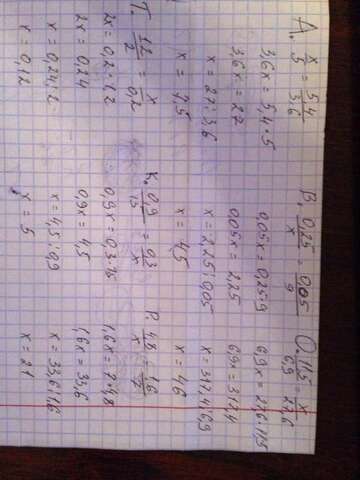 А. x/5 = 5,4/3,6
3,6x = 5,4·5
3,6x = 27
x = 27:3,6
x = 7,5
В. 0,25/x = 0,05/9
0,05x = 0,25·9
0,05x = 2,25
x = 2,25:0,05
x = 4,5
О. 11,5/6,9 = x/27,6
6,9x = 27,6·11,5
6,9x = 317,4
x = 317,4:6,9
x = 46
Т. 1,2/2 = x/0,2
2x = 0,2·1,2
2x = 0,24
x = 0,24:2
x = 0,12
К. 0,9/15 = 0,3/x
0,9x = 0,3·15
0,9x = 4,5
x = 4,5:0,9
x = 5
Р. 4,8/x = 1,6/7
1,6x = 7·4,8
1,6x = 33,6
x = 33,6:1,6
x = 21